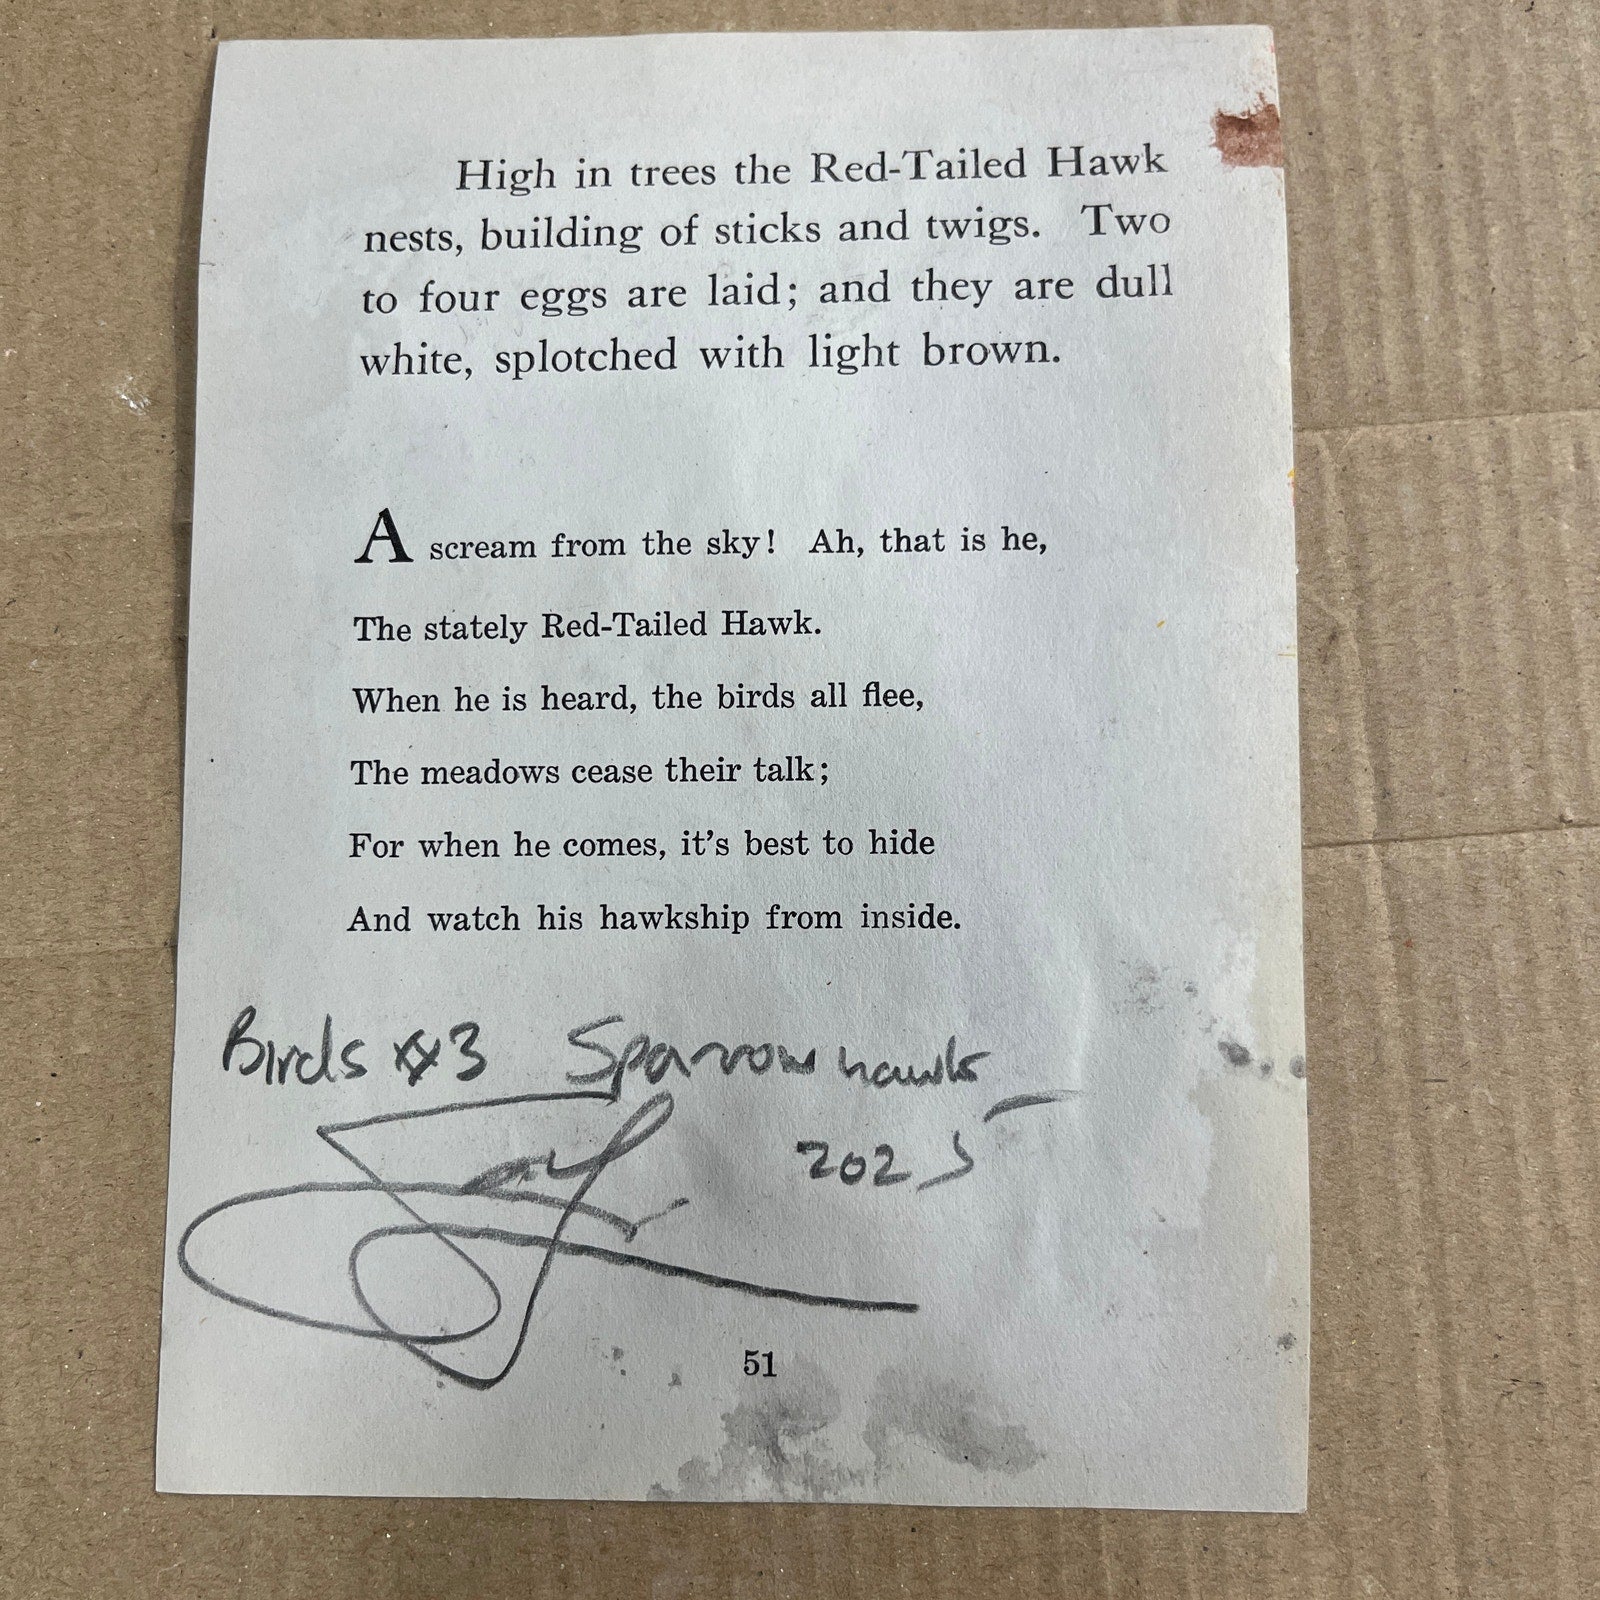 High in trees the Red-Tailed Hawk
nests, building of sticks and twigs. Two
to four eggs are laid; and they are dull
white, splotched with light brown.
A scream from the sky! Ah, that is he,
The stately Red-Tailed Hawk.
When he is heard, the birds all flee,
The meadows cease their talk;
For when he comes, it's best to hide
And watch his hawkship from inside.
Birds #3 Sparrowhawk
2025
51